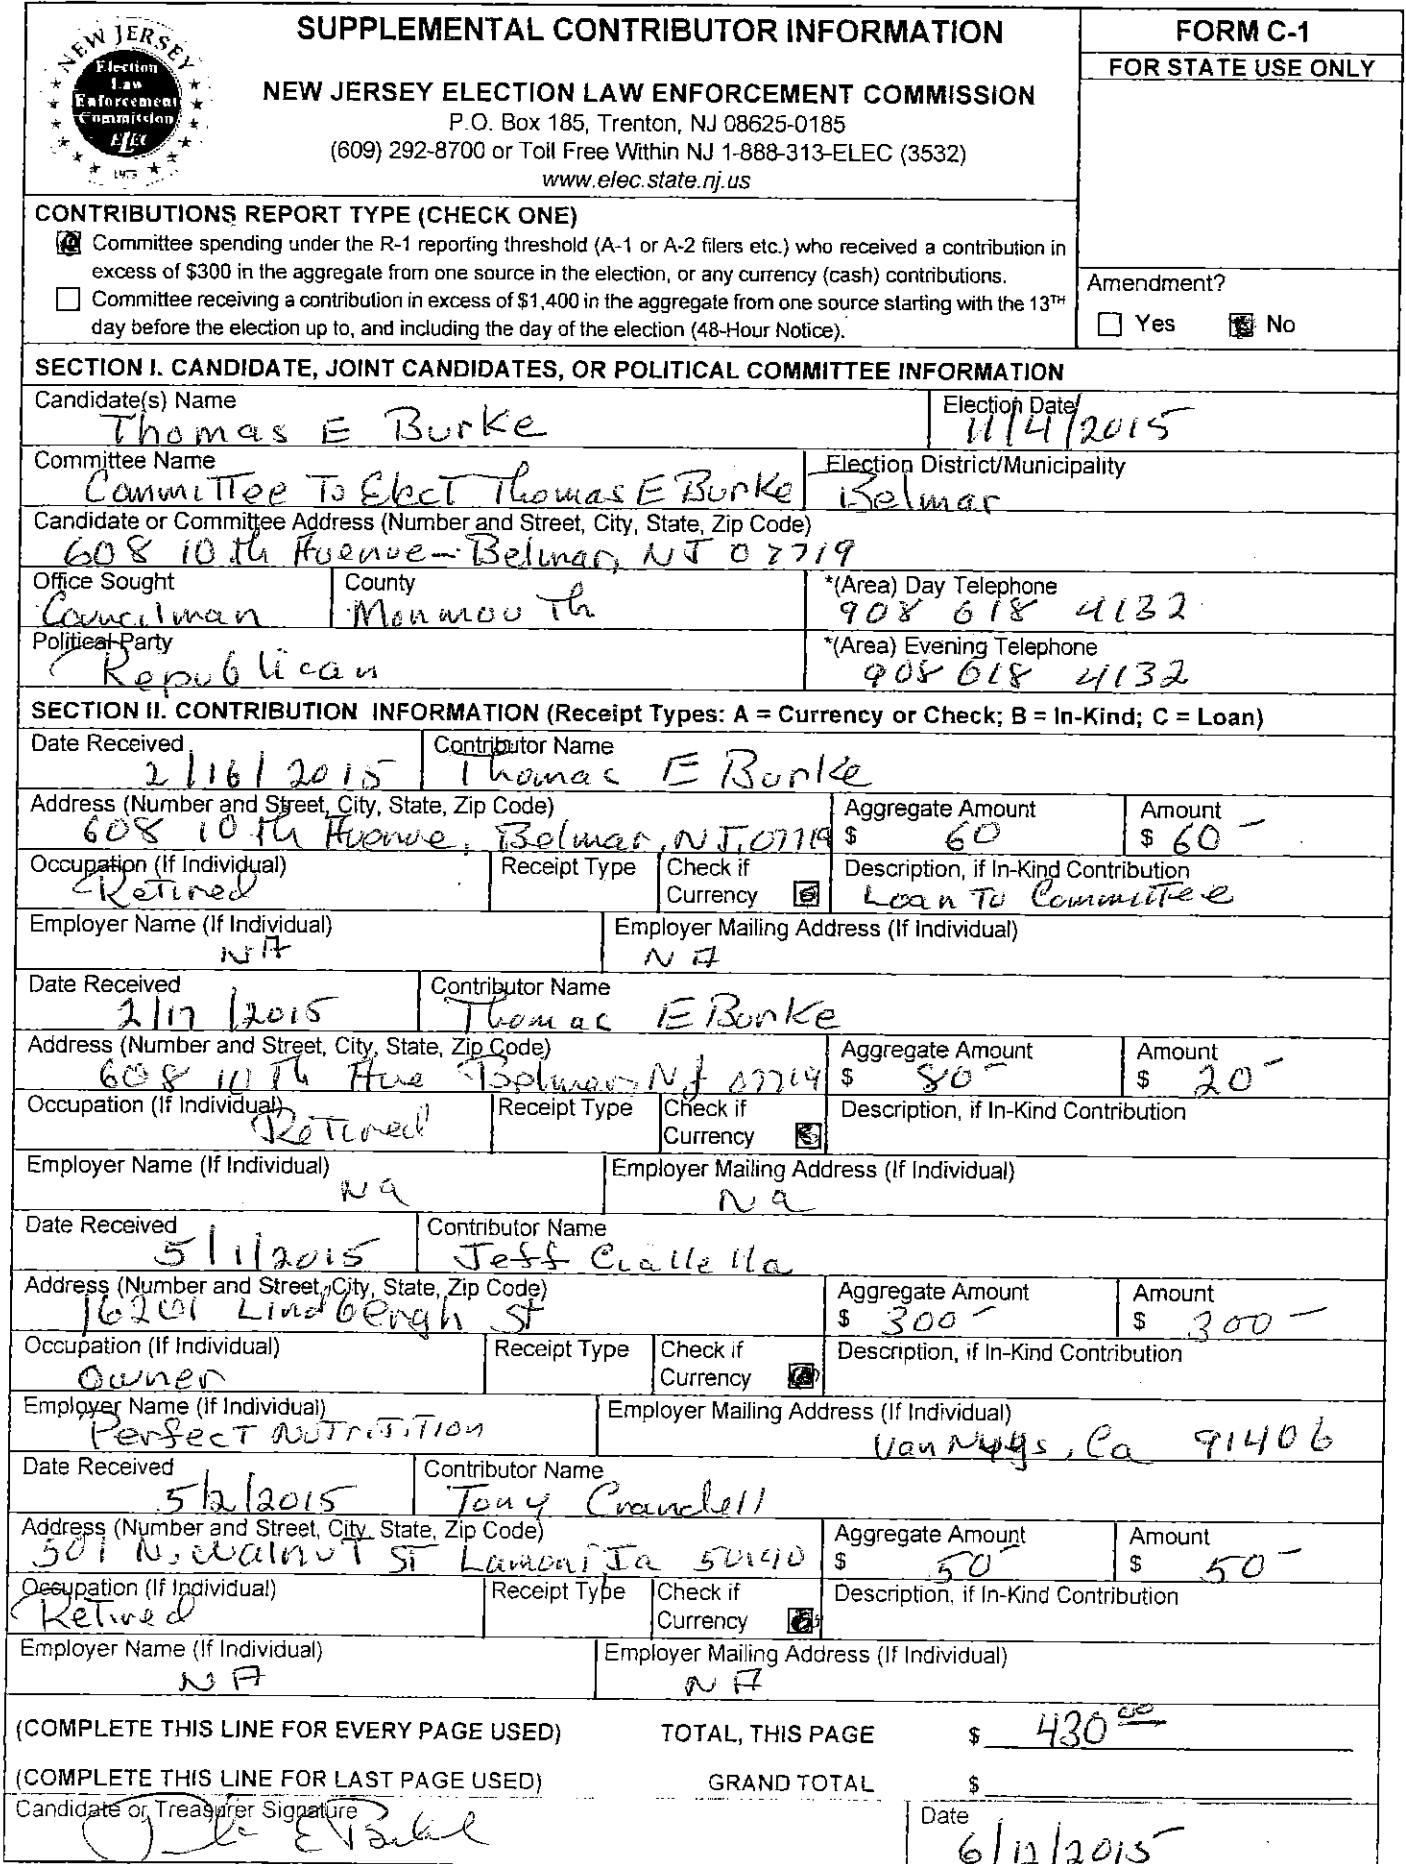 NEW JERSEY
Election
Law
Enforcement
Commission
ELEC
1973
SUPPLEMENTAL CONTRIBUTOR INFORMATION
NEW JERSEY ELECTION LAW ENFORCEMENT COMMISSION
P.O. Box 185, Trenton, NJ 08625-0185
(609) 292-8700 or Toll Free Within NJ 1-888-313-ELEC (3532)
www.elec.state.nj.us
FORM C-1
FOR STATE USE ONLY
CONTRIBUTIONS REPORT TYPE (CHECK ONE)
Committee spending under the R-1 reporting threshold (A-1 or A-2 filers etc.) who received a contribution in
excess of $300 in the aggregate from one source in the election, or any currency (cash) contributions.
Committee receiving a contribution in excess of $1,400 in the aggregate from one source starting with the 13TH
day before the election up to, and including the day of the election (48-Hour Notice).
Amendment?
Yes No
SECTION I. CANDIDATE, JOINT CANDIDATES, OR POLITICAL COMMITTEE INFORMATION
Candidate(s) Name Election Date
Thomas E Burke 11/4/2015
Committee Name Election District/Municipality
Committee To Elect Thomas E Burke Belmar
Candidate or Committee Address (Number and Street, City, State, Zip Code)
608 10th Avenue - Belmar, NJ 07719
Office Sought County *(Area) Day Telephone
Councilman Monmouth 908 618 4132
Political Party *(Area) Evening Telephone
Republican 908 618 4132
SECTION II. CONTRIBUTION INFORMATION (Receipt Types: A = Currency or Check; B = In-Kind; C = Loan)
Date Received Contributor Name
2/16/2015 Thomas E Burke
Address (Number and Street, City, State, Zip Code) Aggregate Amount Amount
608 10th Avenue, Belmar, NJ, 07719 $ 60 $ 60 -
Occupation (If Individual) Receipt Type Check if Currency Description, if In-Kind Contribution
Retired Loan To Committee
Employer Name (If Individual) Employer Mailing Address (If Individual)
NA NA
Date Received Contributor Name
2/17/2015 Thomas E Burke
Address (Number and Street, City, State, Zip Code) Aggregate Amount Amount
608 10th Ave Belmar, NJ 07719 $ 80 - $ 20 -
Occupation (If Individual) Receipt Type Check if Currency Description, if In-Kind Contribution
Retired
Employer Name (If Individual) Employer Mailing Address (If Individual)
Na Na
Date Received Contributor Name
5/1/2015 Jeff Ciallella
Address (Number and Street, City, State, Zip Code) Aggregate Amount Amount
16201 Lindbergh St $ 300 - $ 300 -
Occupation (If Individual) Receipt Type Check if Currency Description, if In-Kind Contribution
Owner
Employer Name (If Individual) Employer Mailing Address (If Individual)
Perfect Nutrition Van Nuys, Ca 91406
Date Received Contributor Name
5/2/2015 Tony Crandell
Address (Number and Street, City, State, Zip Code) Aggregate Amount Amount
501 N. Walnut St Lamoni, Ia 50140 $ 50 - $ 50 -
Occupation (If Individual) Receipt Type Check if Currency Description, if In-Kind Contribution
Retired
Employer Name (If Individual) Employer Mailing Address (If Individual)
NA NA
(COMPLETE THIS LINE FOR EVERY PAGE USED) TOTAL, THIS PAGE $ 430 00
(COMPLETE THIS LINE FOR LAST PAGE USED) GRAND TOTAL $
Candidate or Treasurer Signature Date
E Burke 6/12/2015